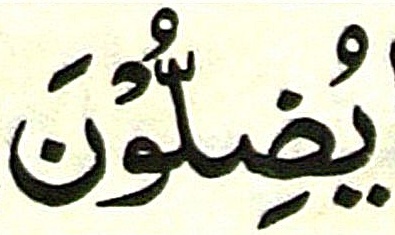 يُضِلُّوْنَ